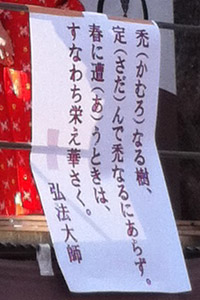 禿(かむろ)なる樹、
定(さだ)んで禿なるにあらず。
春に遭(あ)うときは、
すなわち栄え華さく。
弘法大師